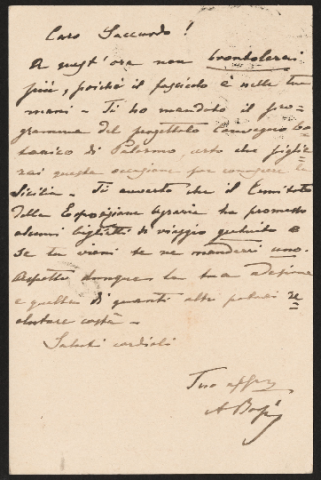 Caro Saccardo!
A quest'ora non brontolerai
più, poichè il fascicolo è nelle tue
mani - Ti ho mandato il pro-
gramma del progettato Convegno bo-
tanico di Palermo, certo che piglie-
rai questa occasione per conoscere la
Sicilia - Ti avverto che il Comitato
della Esposizione Agraria ha promesso
alcuni biglietti di viaggio gratuito e
se tu vieni te ne manderei uno.
Aspetto dunque la tua adesione
e quella di quanti altri potrai re
clutare costà -
Saluti cordiali
Tuo affmo
A Borzì